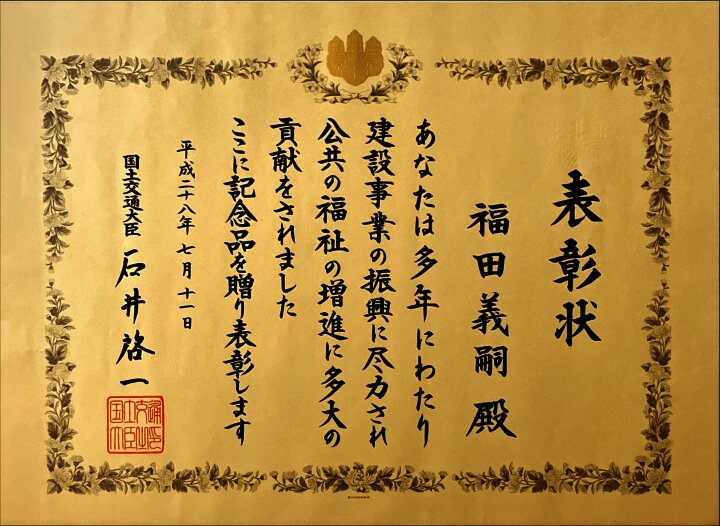 表彰状
福田義嗣 殿
あなたは多年にわたり
建設事業の振興に尽力され
公共の福祉の増進に多大の
貢献をされました
ここに記念品を贈り表彰します
平成二十八年 七月 十一日
国土交通大臣 石井啓一
国土交通
大臣之印